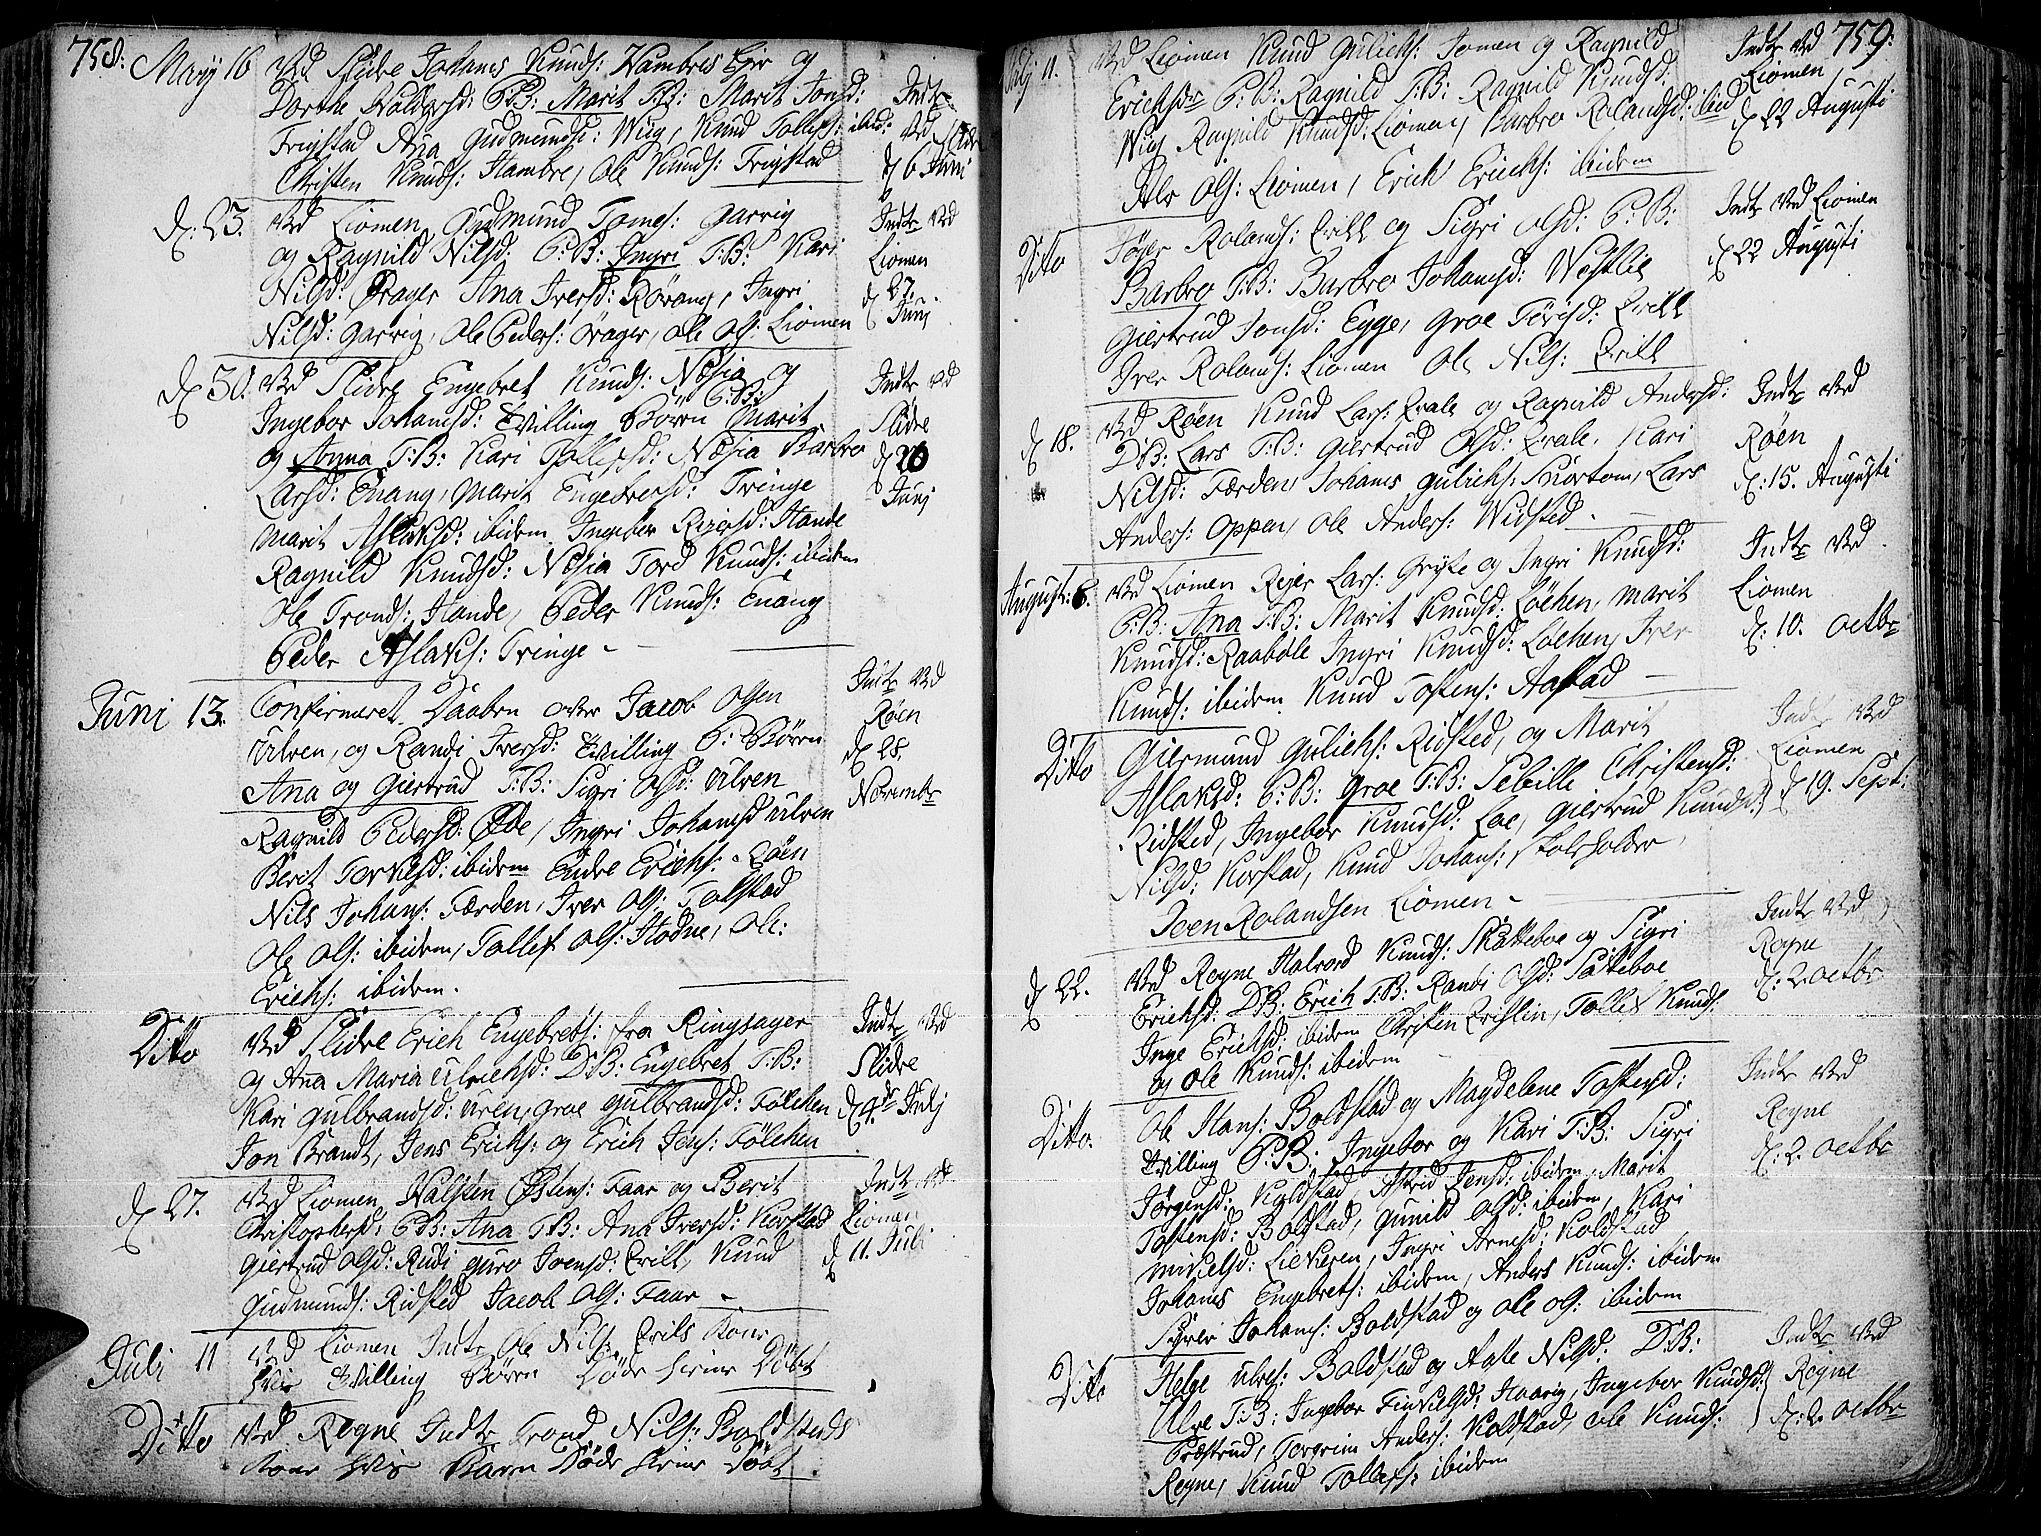 758:
Maÿ 16 Ved Slidre Johanes Knuds: Hambres Eie og
Dorthe Haldorsd: P:B: Marit T:B: Marit Jonsd:
Trigstad Ana Gudmundsd: Wiig, Knud Tollefs: ibid:
Christen Knuds: Hambre, Ole Knuds: Trigstad
Indtr Ved Slidre d 6 Juni
d: 23. Ved Liomen Gudmund Tomes: Garvig
og Ragnild Nilsd: P:B: Ingri T:B: Kari
Nilsd: Ørager Ana Iversd: Rørang, Ingri
Nilsd: Garvig, Ole Peders: Ørager, Ole Ols: Liomen
Indtr Ved Liomen d 27. Junj
d 30. Ved Slidre Engebret Knuds: Næsia og
Ingebor Johansd: Tvilling Børn P:B: Marit
og Anna T:B: Kari Tollefsd: Næsia Barbro
Larsd: Enang, Marit Engebretsd: Tvinge
Marit Aslaksd: ibidem. Ingebor Hande
Ragnild Knudsd: Næsia Tord Knuds: ibidem
Ole Tronds: Hande, Peder Knuds: Enang
Peder Aslaks: Tvinge
Indtr Ved Slidre d 20 Junj
Juni 13. Confirmeret Daaben over Jacob Olsen
Ulven, og Randi Iversd: Tvilling P: Børn
Ana og Giertrud T:B: Sigri Olsd: Ulven
Ragnild Pedersd: Øde, Ingri Johansd Ulven
Berit Torkelsd: ibidem Endre Erichs: Røen
Nils Johans: Færden, Iver Ols: Tolstad
Ole Ols: ibidem, Tollef Ols: Hodne, Ole
Erichs: ibidem.
Indtr Ved Røen d 28. Novembr
Ditto Ved Slidre Erich Engebrets: fra Ringsager
og Ana Maria Ulrichsd: D:B: Engebret T:B:
Kari Gulbrandsd: Uren, Groe Gulbrandsd: Følchen
Jon Brandt, Jens Erichs: og Erich Jens: Følchen
Indtr Ved Slidre d 4de Julj
d 27. Ved Liomen Halsten Østens: Faar og Berit
Christophersd: P:B: Ana T:B: Ana Iversd: Korstad
Giertrud Olsd: Rudi Guro Joensd: Qvill, Knud
Gudmunds: Ridsted Jacob Ols: Faar
Indtr Ved Liomen d 11. Juli
Juli 11 Ved Liomen Indtr Ole Nils: Qvils Kone
hvis Tvilling Børn Døde hiemme Døbt
Ditto Ved Rogne Indtr Trond Nils: Boldsteds
Kone hvis Barn Døde hieme Døbt.
759:
Julj 11. Ved Liomen Knud Gulichs: Jomen og Ragnild
Erichsdr P:B: Ragnild T:B: Ragnild Knudsd:
Wiig Ragnild Knudsd: Liomen, Barbro Rolandsd: ibid
Alv Ols: Liomen, Erich Erichs: ibidem
Indtr Ved Liomen d 22 Augusti
Ditto Roland: Qvill og Sigri Olsd: P:B:
Barbro T:B: Barbro Johansd: Westlie
Giertrud Jonsd: Egge, Groe Qvill
Iver Rolands: Liomen Ole Nils: Qvill
Indtr Ved Liomen d 22 Augusti
d 18. Ved Røen Knud Lars: Qvale og Ragnild Andersd:
D:B: Lars T:B: Giertrud Olsd: Qvale, Kari
Nilsd: Færden, Johans Gulichs: Skiortom, Lars
Anders: Oppen, Ole Anders: Widsted
Indtr Ved Røen d: 15. Augusti
August: 8. Ved Liomen Rejer Lars: Gryte og Ingri Knudsd:
P:B: Ana T:B: Marit Knudsd: Løchen, Marit
Knudsd: Raabøle Ingri Knudsd: Løchen, Iver
Knuds: ibidem Knud Tostens: Aastad
Indtr Ved Liomen d: 10. octbr
Ditto Giermund Gulichs: Ridsted, og Marit
Aslaksd: P:B: Groe T:B: Sebille Christensd:
Ridsted, Ingebor Knudsd: Loe, Giertrud Knudsd:
Nilsd: Korstad, Knud Johans: Skoleholder,
Joen Rolandsen Liomen
Indtr Ved Liomen d 19. Sept:
d 22. Ved Rogne Halvord Knuds: Skatteboe og Sigri
Erichsd: D:B: Erich T:B: Randi Olsd: Satteboe
Inge Erichsd: ibidem Christen Qvislin, Tollef Knuds:
og Ole Knuds: ibidem
Indtr Ved Rogne d: 2. octbr
Ditto. Ole Hans: Boldstad og Magdelene Tostensd:
Tvilling P:B: Ingebor og Kari T:B: Sigri
Jørgensd: Koldstad, Astrid Jensd: ibidem, Marit
Tostensd: Boldstad, Gunild Olsd: ibidem, Kari
Mikelsd: Liekeren, Ingri Arnesd: Koldstad
Johans Engebrets: ibidem, Anders Knuds: ibidem
Johans: Boldstad og Ole Ols: ibidem
Indtr Ved Rogne d: 2. octbr
Ditto Helge Ulves: Boldstad og Aaste Nilsd: D:B:
Ulve T:B: Ingebor Haavig, Ingebor Knudsd:
Præstrud, Torgrim Anders: Koldstad, Ole Knuds:
Rogne, Knud Tollefs: ibidem
Indtr Ved Rogne d: 2. octbr